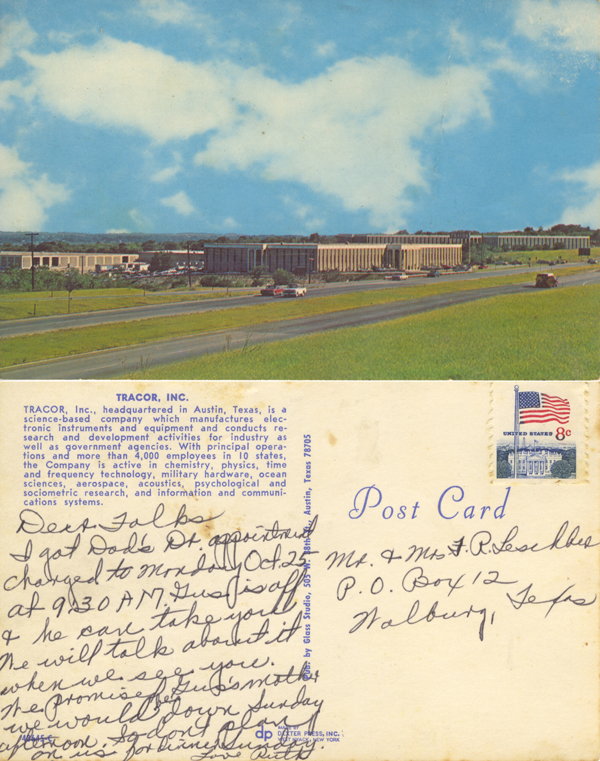 TRACOR, INC.
TRACOR, Inc., headquartered in Austin, Texas, is a
science-based company which manufactures elec-
tronic instruments and equipment and conducts re-
search and development activities for industry as
well as government agencies. With principal opera-
tions and more than 4,000 employees in 10 states,
the Company is active in chemistry, physics, time
and frequency technology, military hardware, ocean
sciences, aerospace, acoustics, psychological and
sociometric research, and information and communi-
cations systems.
Dear Folks
I got Dad's Dr. appointment
changed to Monday Oct. 25
at 9:30 A.M. Gus is off
& he can take you.
We will talk about it
when we see you.
We promised Gus's mother
we would be down Sunday
afternoon. So don't plan
on us for dinner Sunday.
Love Ruth
by Glass Studio, 503 W. Austin, Texas 78705
dp
MADE BY
DEXTER PRESS, INC.
WEST NYACK, NEW YORK
UNITED STATES 8c
Post Card
Mr. & Mrs F. R. Leschber
P.O. Box 12
Walburg, Texas